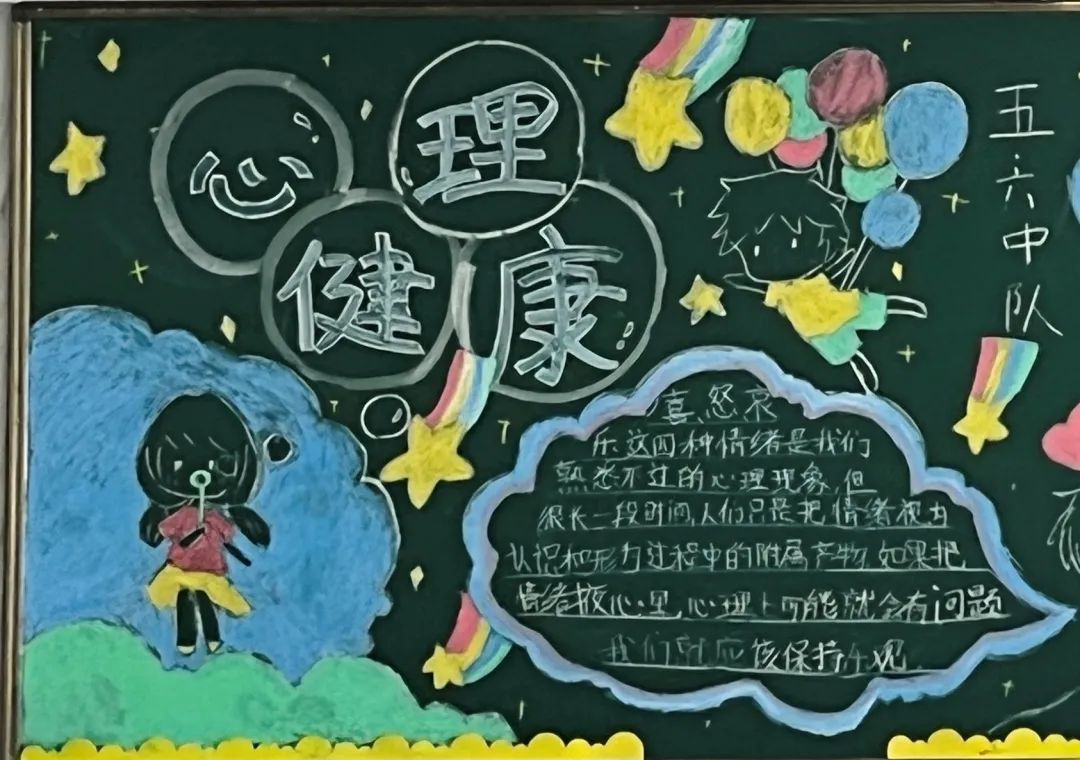 心理
健康
五六中队
喜怒哀
乐这四种情绪是我们
熟悉不过的心理现象,但
很长一段时间,人们只是把情绪视为
认识和行为过程中的附属产物,如果把
情绪放心里,心理上可能就会有问题
我们就应该保持乐观